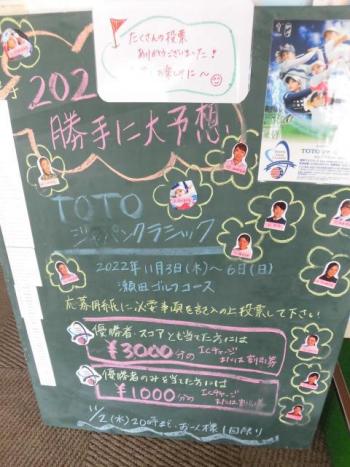 たくさんの投票
ありがとうございました!
202
勝手に大予想
TOTO
ジャパンクラシック
2022年11月3日(木)~6日(日)
瀬田ゴルフコース
応募用紙に必要事項を記入の上投票して下さい
優勝者、スコアとも当てた方には
¥3000分の ICチャージ または割引券
優勝者のみを当てた方には
¥1000分の ICチャージ または割引券
11/2(水)20時まで、お一人様1回限り
TOTO